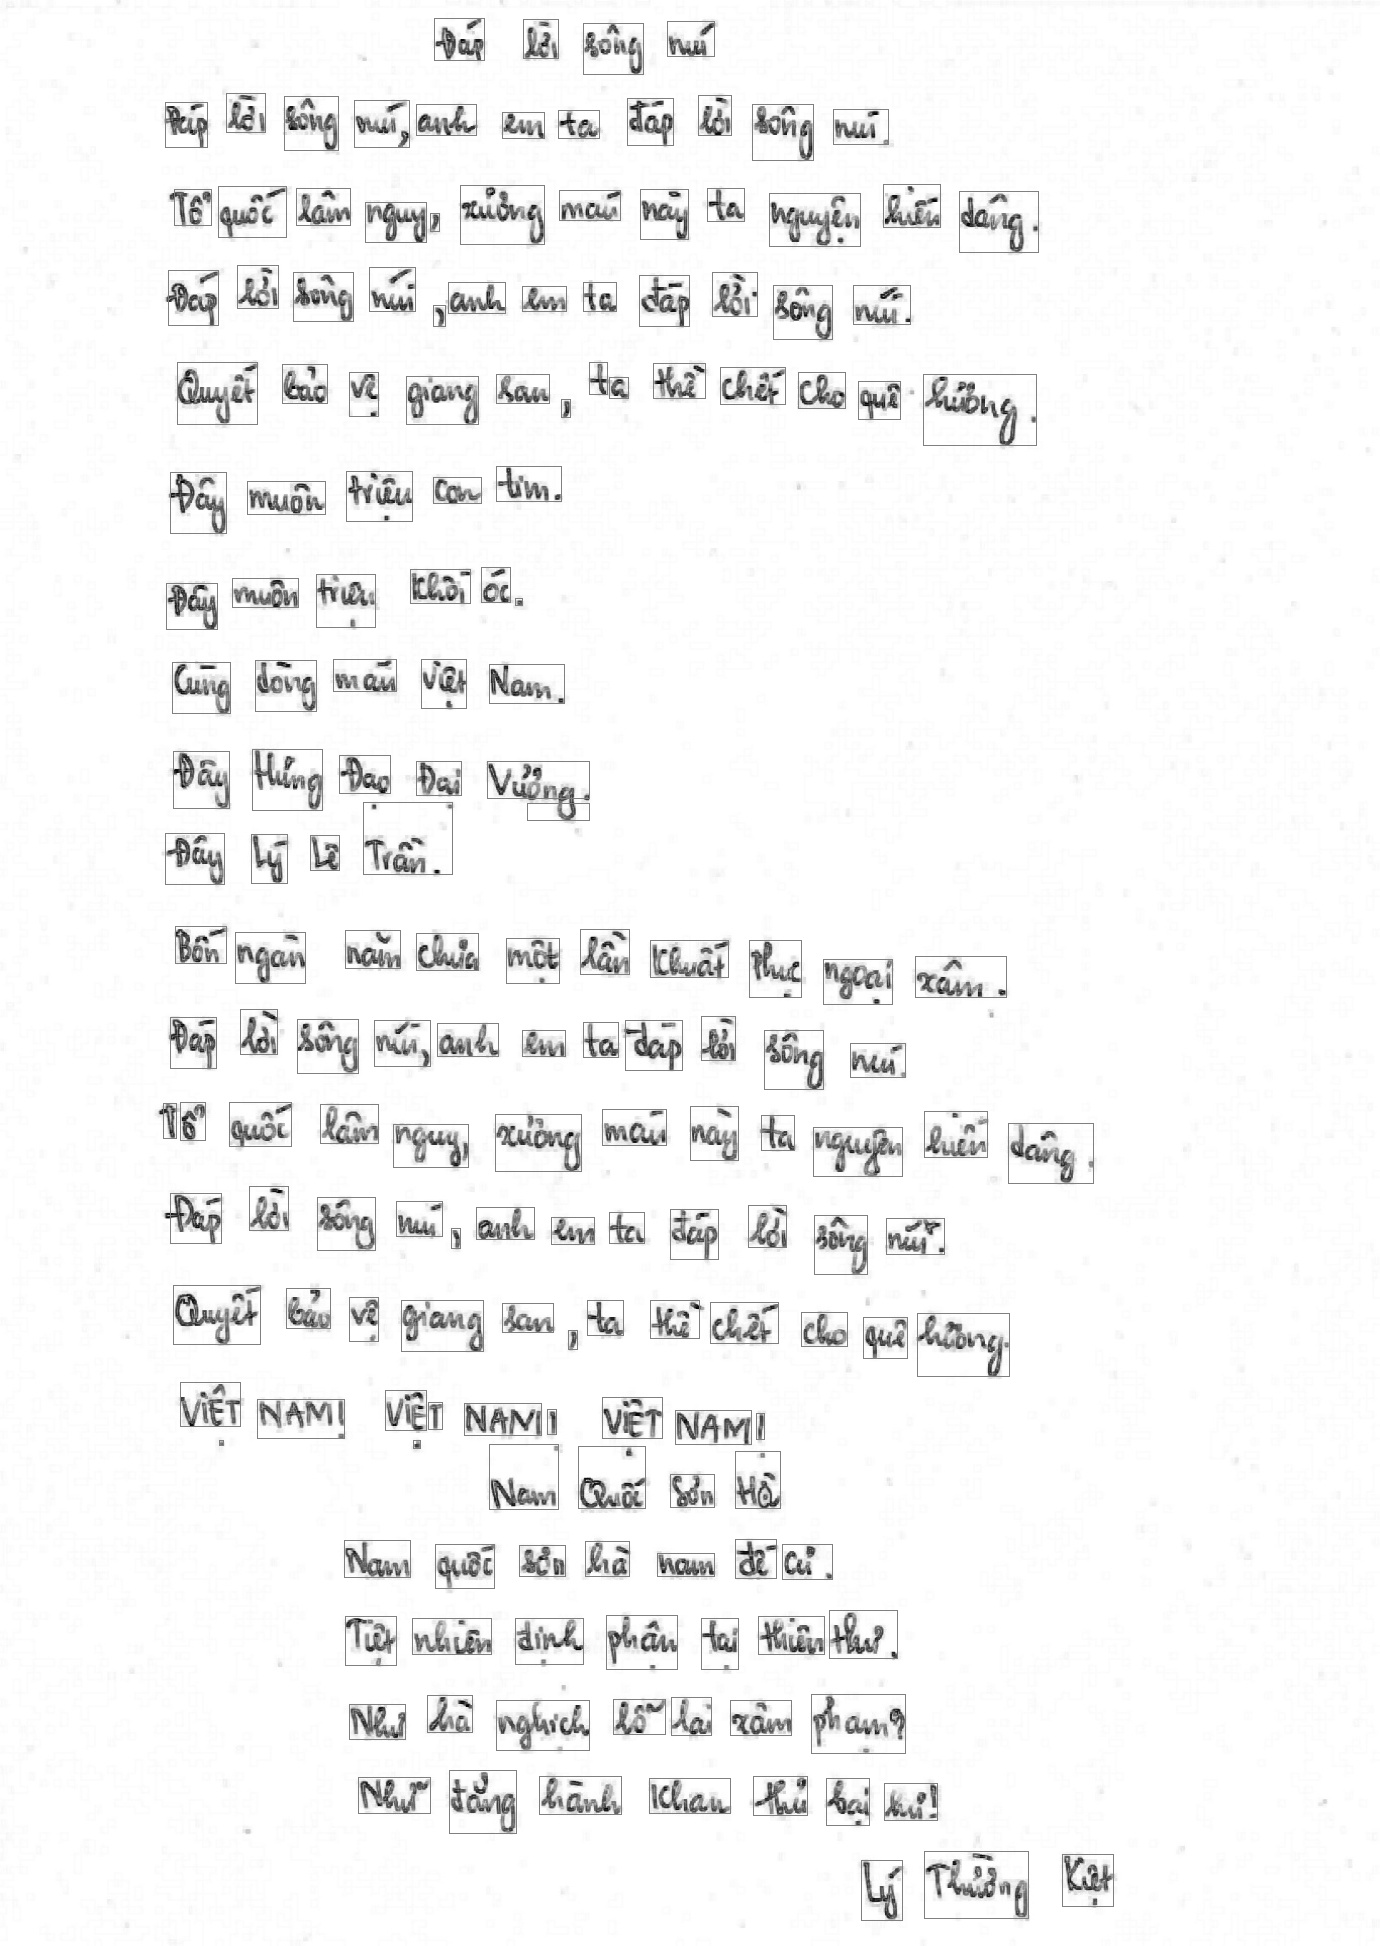 Đáp lời sông núi
Đáp lời sông núi, anh em ta đáp lời sông núi.
Tổ quốc lâm nguy, xương máu này ta nguyện hiến dâng.
Đáp lời sông núi, anh em ta đáp lời sông núi.
Quyết bảo vệ giang san, ta thề chết cho quê hương.
Đây muôn triệu con tim.
Đây muôn triệu khối óc.
Cùng dòng máu Việt Nam.
Đây Hưng Đạo Đại Vương.
Đây Lý Lê Trần.
Bốn ngàn năm chưa một lần khuất phục ngoại xâm.
Đáp lời sông núi, anh em ta đáp lời sông núi.
Tổ quốc lâm nguy, xương máu này ta nguyện hiến dâng.
Đáp lời sông núi, anh em ta đáp lời sông núi.
Quyết bảo vệ giang san, ta thề chết cho quê hương.
VIỆT NAM! VIỆT NAM! VIỆT NAM!
Nam Quốc Sơn Hà
Nam quốc sơn hà nam đế cư.
Tiệt nhiên định phận tại thiên thư.
Như hà nghịch lỗ lai xâm phạm?
Như đẳng hành khan thủ bại hư!
Lý Thường Kiệt